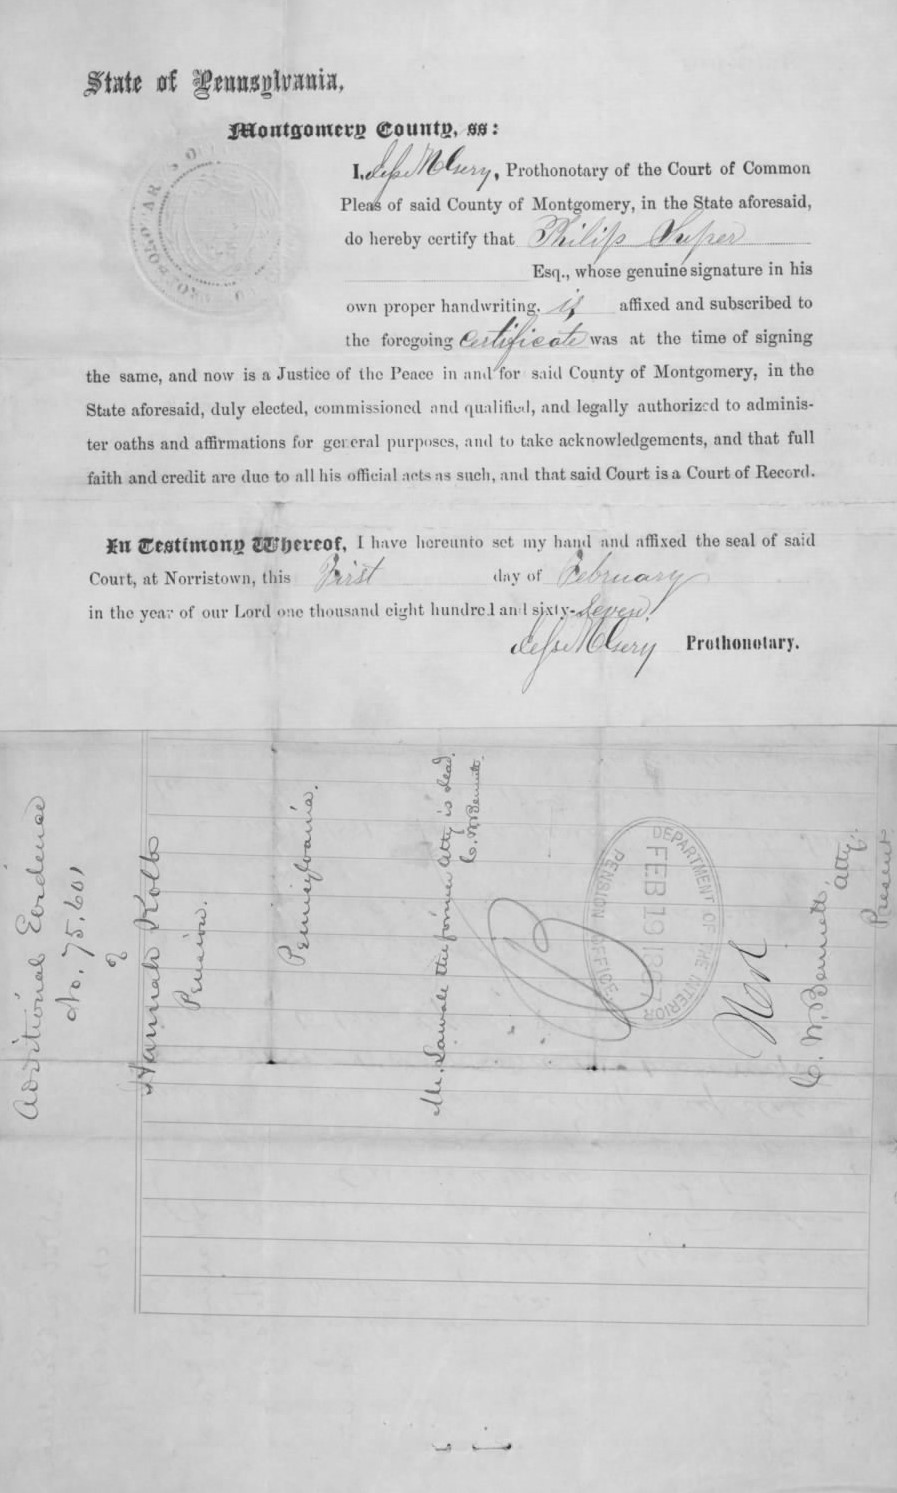 State of Pennsylvania,
Montgomery County, ss:
I, Jesse M Cury, Prothonotary of the Court of Common
Pleas of said County of Montgomery, in the State aforesaid,
do hereby certify that Philip Super
Esq., whose genuine signature in his
own proper handwriting, is affixed and subscribed to
the foregoing Certificate was at the time of signing
the same, and now is a Justice of the Peace in and for said County of Montgomery, in the
State aforesaid, duly elected, commissioned and qualified, and legally authorized to adminis-
ter oaths and affirmations for general purposes, and to take acknowledgements, and that full
faith and credit are due to all his official acts as such, and that said Court is a Court of Record.
In Testimony Whereof, I have hereunto set my hand and affixed the seal of said
Court, at Norristown, this First day of February
in the year of our Lord one thousand eight hundred and sixty-Seven.
Jesse M Cury Prothonotary.
Additional Evidence
No. 75.601
of
Hannah Kolb
Pension.
Pennsylvania.
Mr. the former Atty is dead.
C. N. Bennett.
DEPARTMENT OF THE INTERIOR
FEB 19 1867
PENSION OFFICE
C. N. Bennett,
Atty.
Present